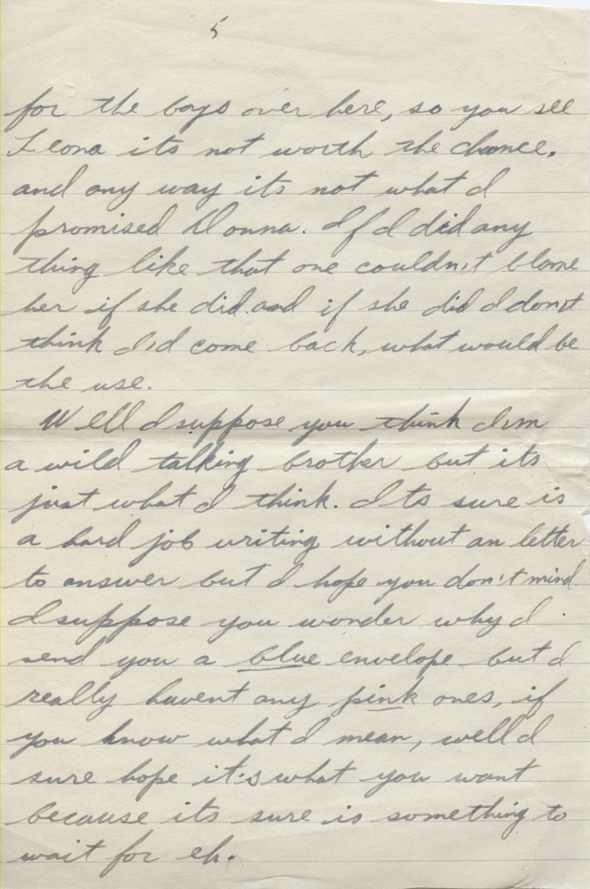 5
for the boys over here, so you see
Leona its not worth the chance.
and any way its not what I
promised Donna. If I did any
thing like that one couldn't blame
her if she did. and if she did I don't
think I'd come back, what would be
the use.
Well I suppose you think I'm
a wild talking brother but its
just what I think. Its sure is
a hard job writing without an letter
to answer but I hope you don't mind.
I suppose you wonder why I
send you a blue envelope but I
really havent any pink ones, if
you know what I mean, well I
sure hope it's what you want
because its sure is something to
wait for eh.